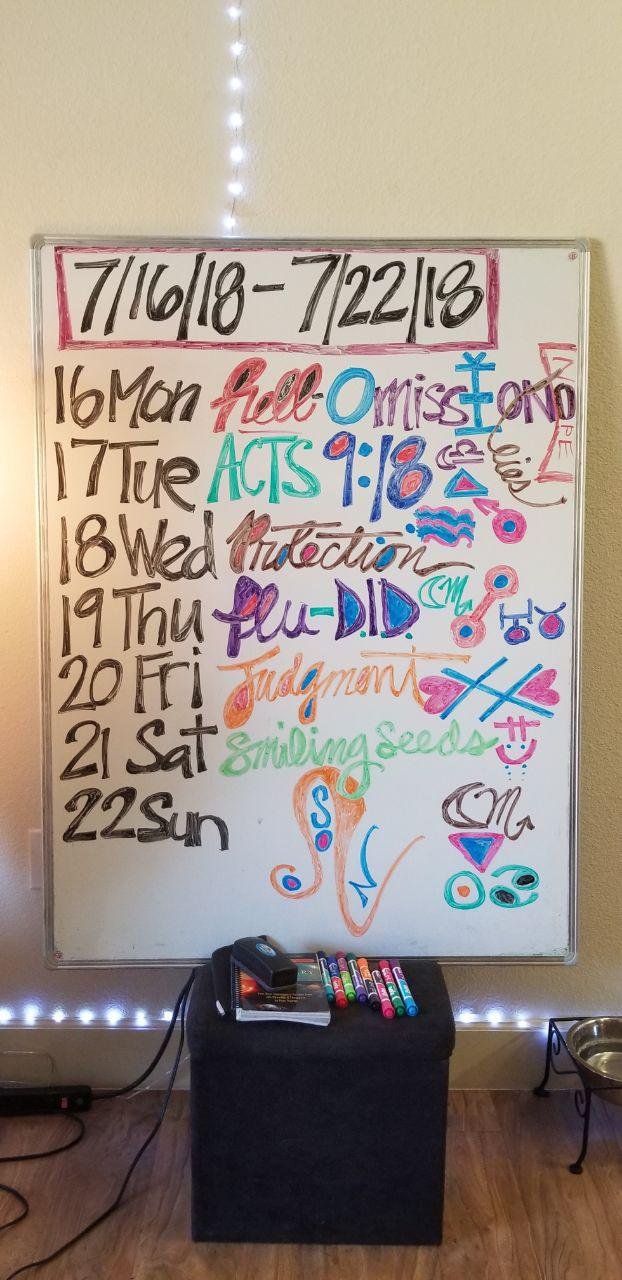 7/16/18 - 7/22/18
16 Mon hell-OmissiOND
17 Tue ACTS 9:18
lies
18 Wed Protection
19 Thu flu-D.I.D.
20 Fri Judgment
21 Sat Smiling Seeds
22 Sun